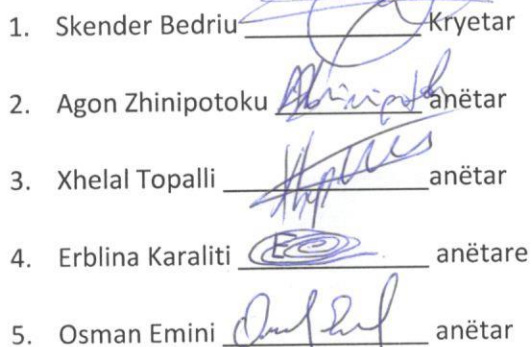 1. Skender Bedriu Kryetar
2. Agon Zhinipotoku anëtar
3. Xhelal Topalli anëtar
4. Erblina Karaliti anëtare
5. Osman Emini anëtar